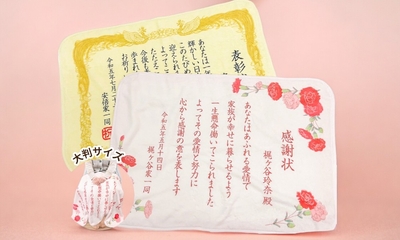 表彰
あなたは
輝かしい日
このたびめ
迎えられま
今後も
お祈り
令和五年七月二十
安倍家一同
大判サイズ
感謝状
梶ヶ谷玲奈殿
あなたはあふれる愛情で
家族が幸せに暮らせるよう
一生懸命働いてこられました
よってその愛情と努力に
心から感謝の意を表します
令和五年五月十四日
梶ヶ谷家一同